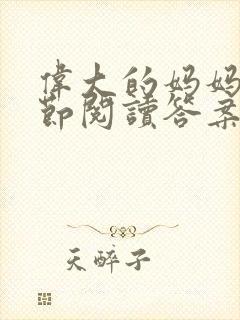 偉大的媽媽
節閱讀答案
天醉子